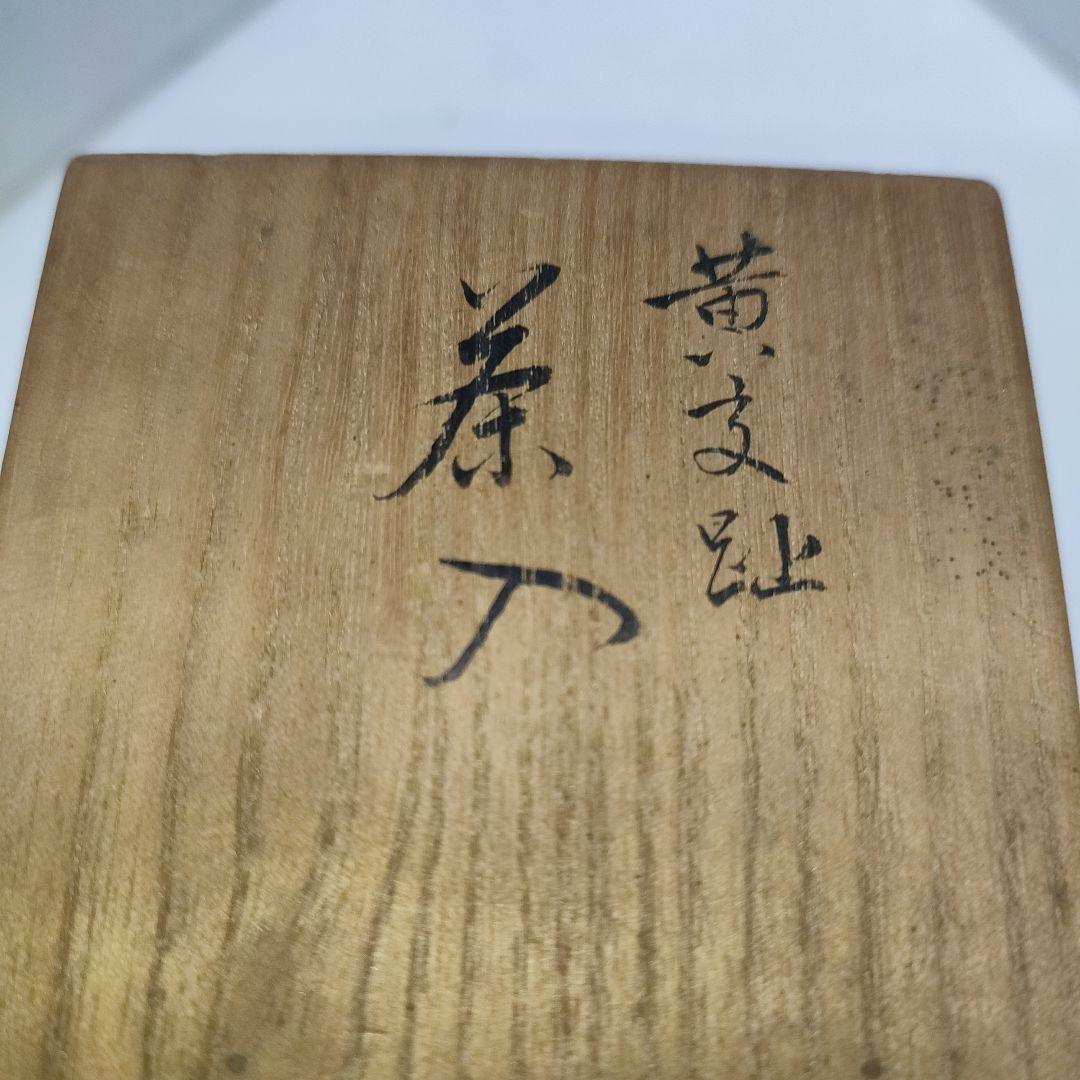 黄交趾
茶入